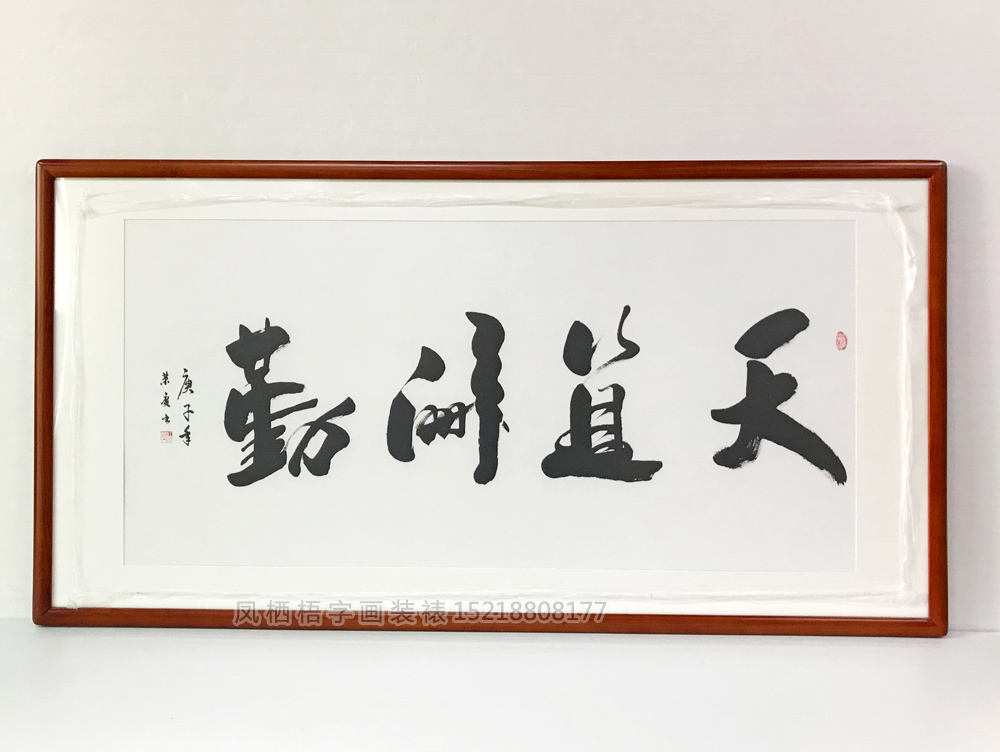 天道酬勤
庚子年
荣庭书
凤栖梧字画装裱15218808177